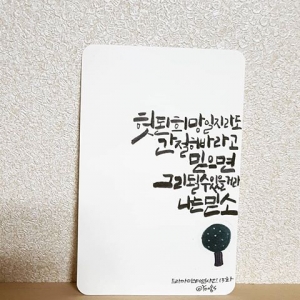 헛된희망일지라도
간절히바라고
믿으면
그리될수있을거라
나는믿소